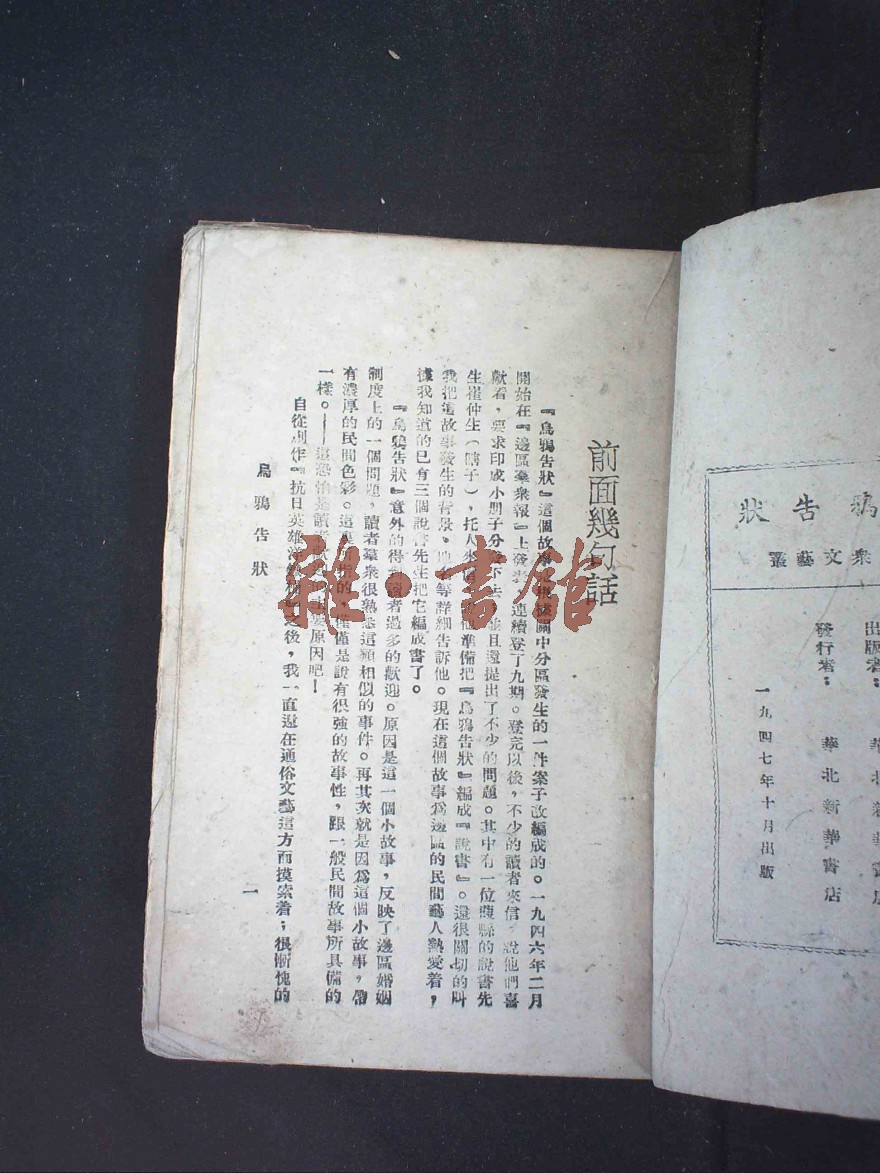 前面幾句話
『烏鴉告狀』這個故事是根據關中分區發生的一件案子改編成的。一九四六年二月
開始在『邊區羣衆報』上發表,連續登了九期。登完以後,不少的讀者來信,說他們喜
歡看,要求印成小册子分發下去,並且還提出了不少的問題。其中有一位
縣的說書先
生崔仲生(瞎子),托人來信,說他準備把『烏鴉告狀』編成『說書』。還很關切的叫
我把這故事發生的背景、
等詳細告訴他。現在這個故事爲邊區的民間藝人熱愛着,
據我知道的已有三個說書先生把它編成書了。
『烏鴉告狀』意外的得到讀者過多的歡迎。原因是這一個小故事,反映了邊區婚姻
制度上的一個問題,讀者羣衆很熟悉這類相似的事件。再其次就是因爲這個小故事,帶
有濃厚的民間色彩。這裏
指的,僅僅是說有很強的故事性,跟一般民間故事所具備的
一樣。——這恐怕是讀者
原因吧!
自從創作『抗日英雄洋鐵桶』之後,我一直還在通俗文藝這方面摸索着;很慚愧的
烏鴉告狀
一
鴉告狀
衆文藝叢
出版者:華北新華書店
發行者:華北新華書店
一九四七年十月出版
雅·書館